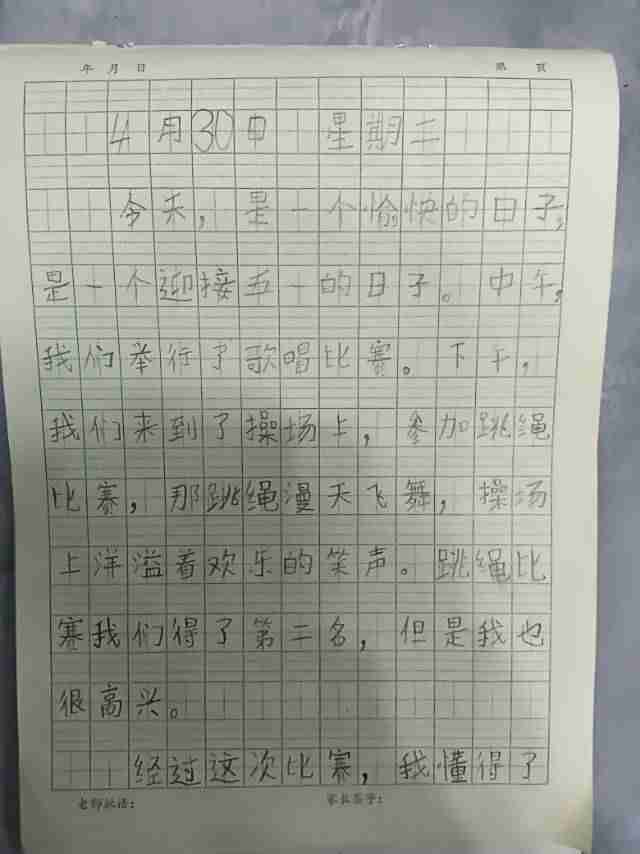 年 月 日 第 页
4月30日 星期二
今天，是一个愉快的日子，
是一个迎接五一的日子。中午，
我们举行了歌唱比赛。下午，
我们来到了操场上，参加跳绳
比赛，那跳绳漫天飞舞，操场
上洋溢着欢乐的笑声。跳绳比
赛我们得了第二名，但是我也
很高兴。
经过这次比赛，我懂得了
老师批语： 家长签字：